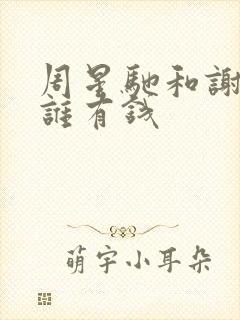 周星馳和謝
誰有錢
萌宇小耳朵